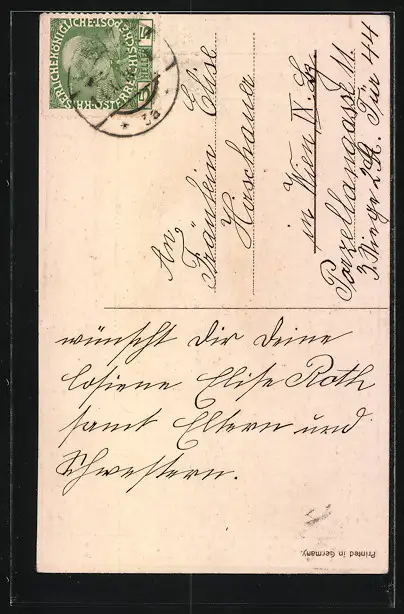 KAISERLICHE KÖNIGLICHE
ÖSTERREICHISCHE POST
5 HELLER 5
3a
An
Fräulein Else
Horschauer
in Wien IX. Bz
Porzellangasse
3. Stiege 2. St. Tür 44
wünscht dir deine
Elise Roth
samt Eltern und
Schwestern.
Printed in Germany.